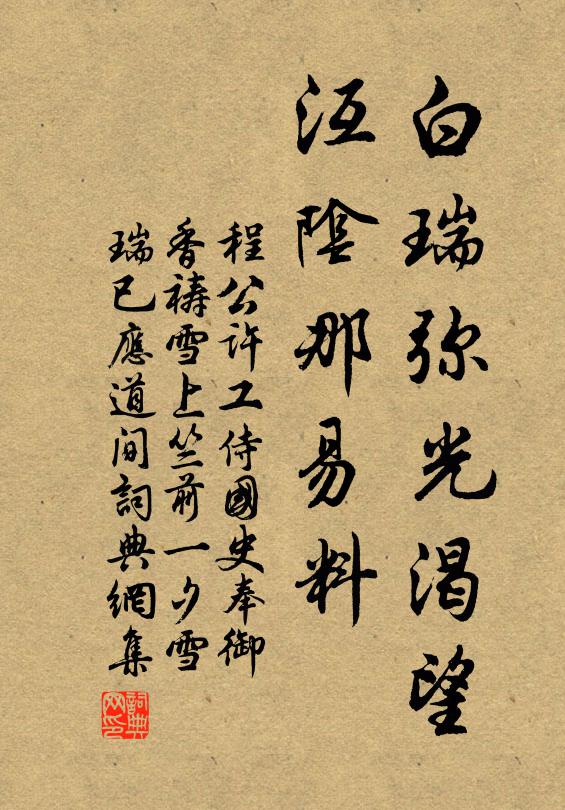 白瑞弥光渴望
沍陰那易料
程公許工侍國史奉御
香禱雪上竺前一夕雪
瑞已應道间詞典網集
詞典
网印